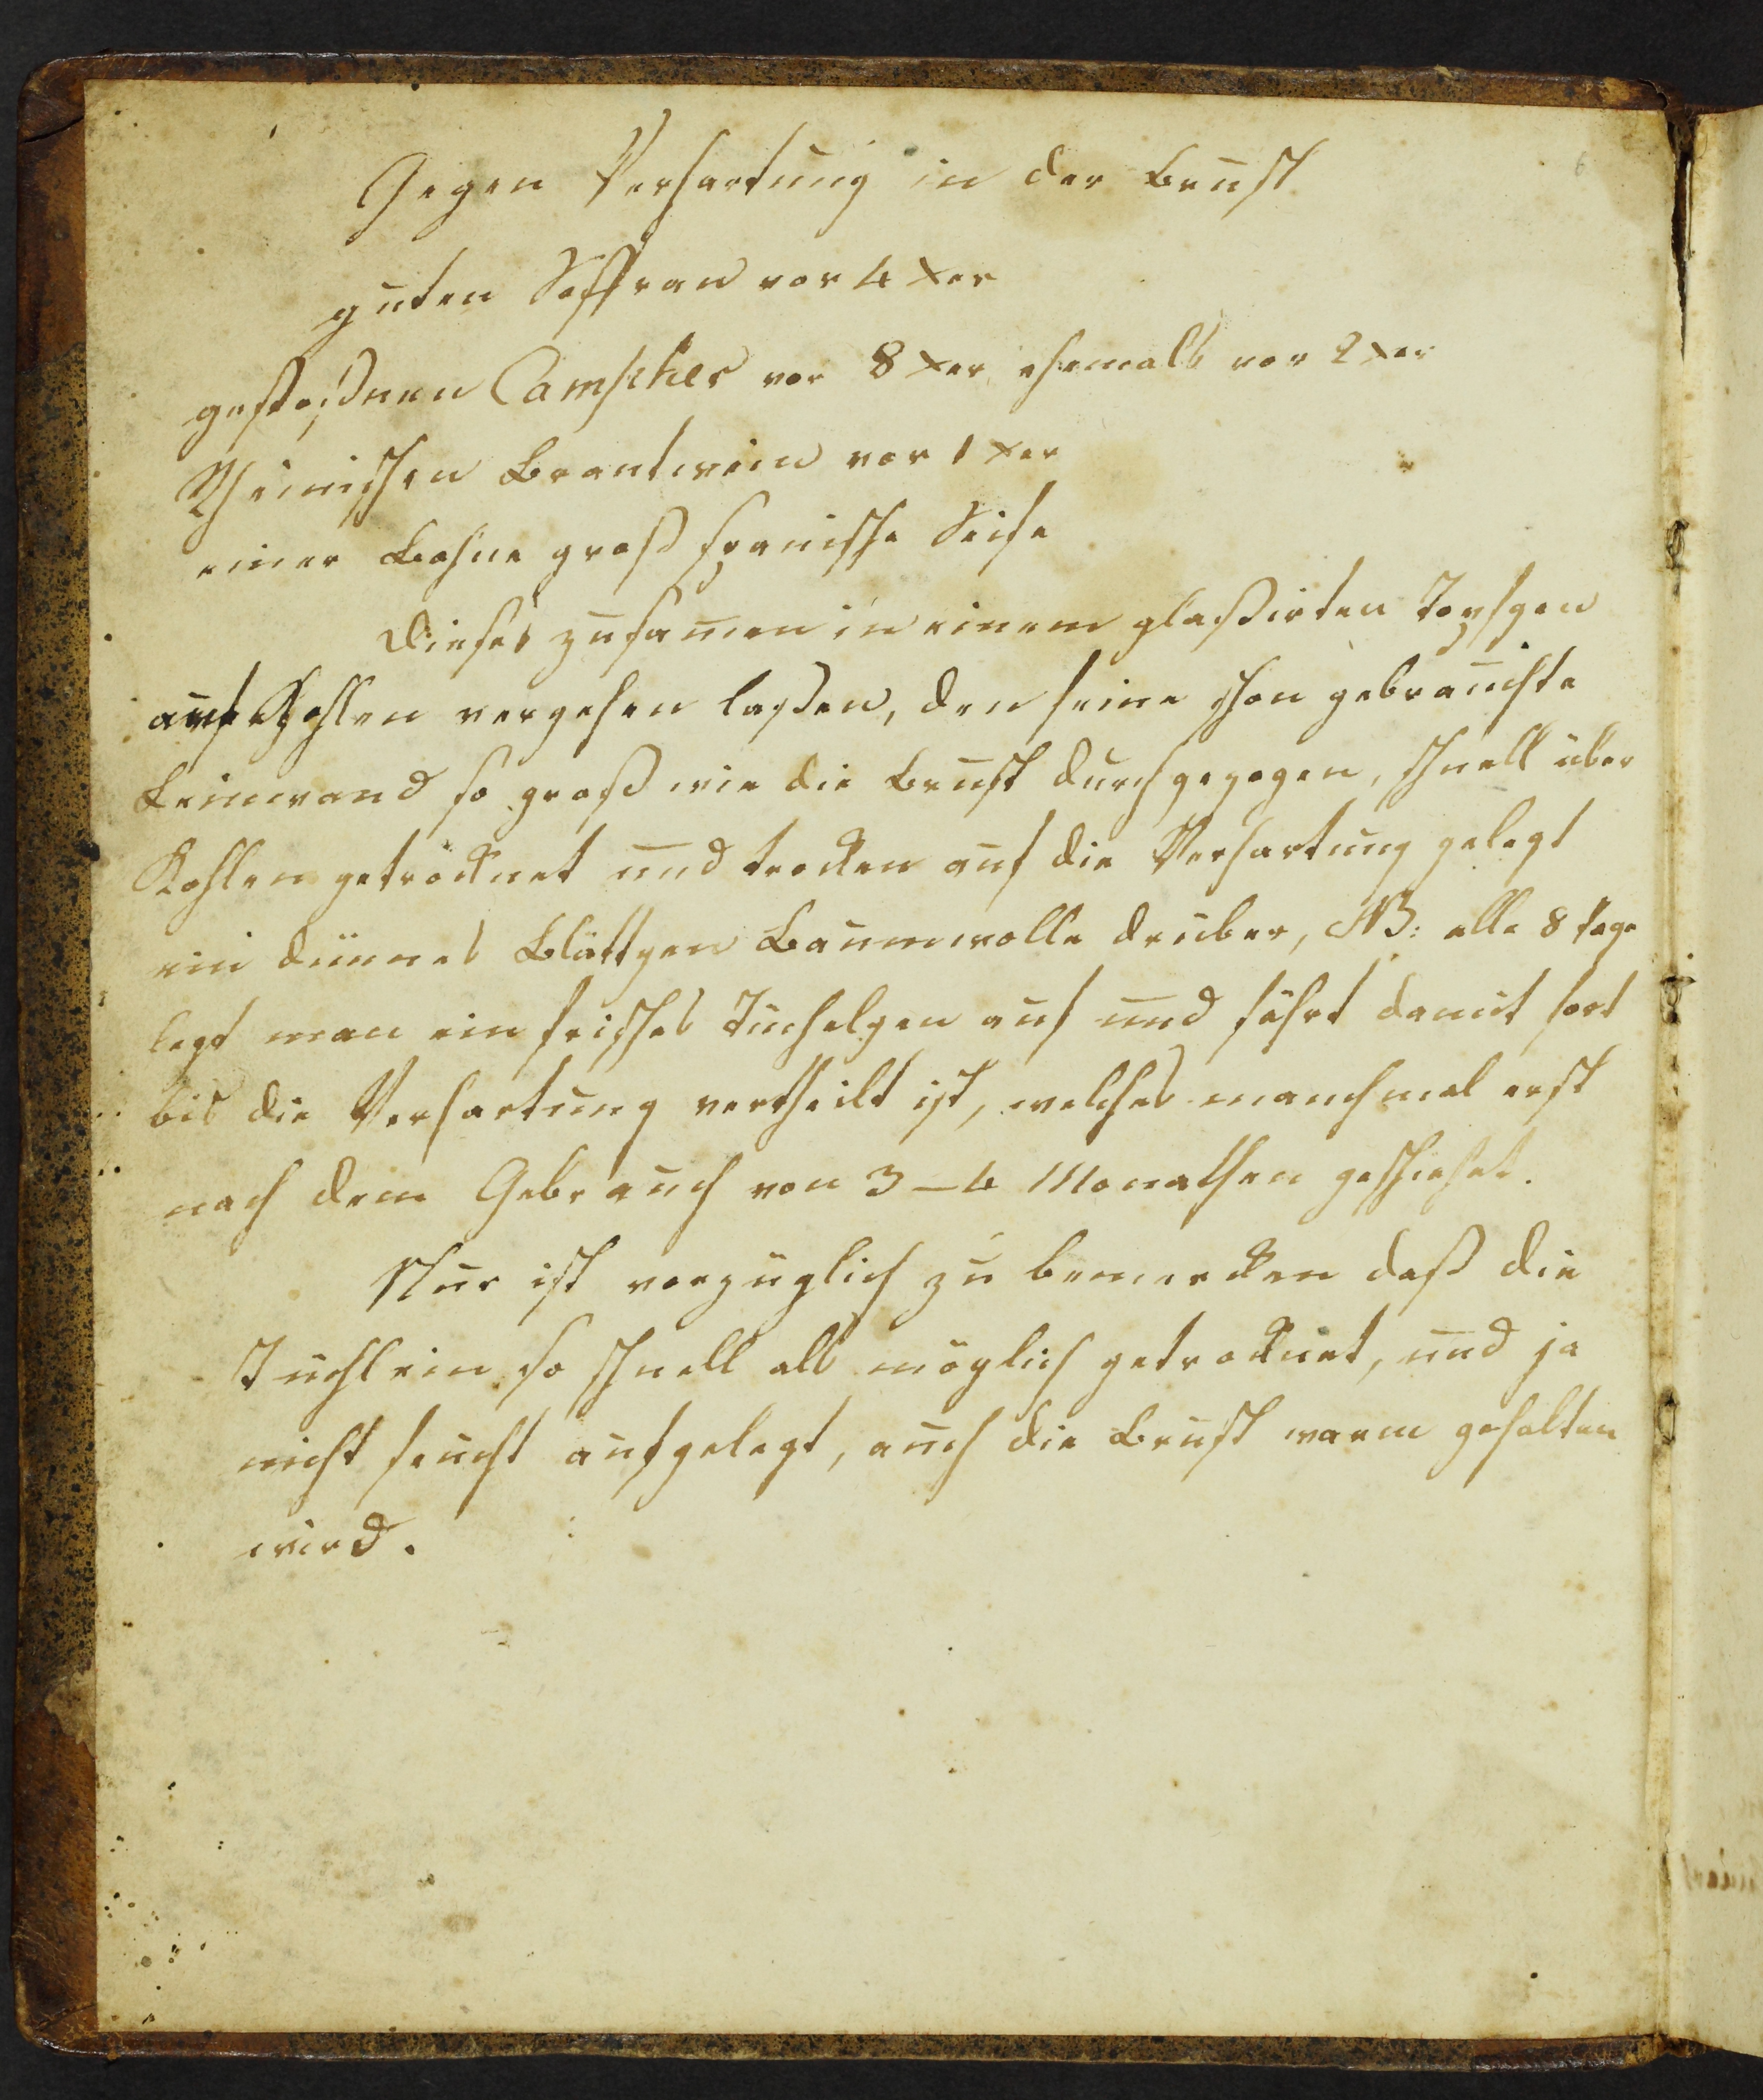 Gegen Verhartung in der Brust
guten Saffran vor 4 xer
gestoßnen Campher vor 8 xer ehemals vor 2 xer
Rheinischen Brantwein vor 1 xer
einer Bohne groß spanische Seife
Dieses zusamen in einem glaßirten Topfgen
auf Kohlen vergehen laßen, den feine schon gebrauchte
Leinwand so groß wie die Brust durchgezogen, schnell über
Kohlen getröcknet und trocken auf die Verhartung gelegt
ein dünnes Blättgen Baumwolle drüber, NB: alle 8 tage
legt man ein frisches Tuchelgen auf und fährt damit fort
bis die Verhartung vertheilt ist, welches manchmal erst
nach dem Gebrauch von 3–4 Monathen geschiehet.
Nur ist vorzüglich zu bemercken daß die
Tuchlein so schnell als möglich getrocknet, und ja
nicht feucht aufgelegt, auch die Brust warm gehalten
wird.